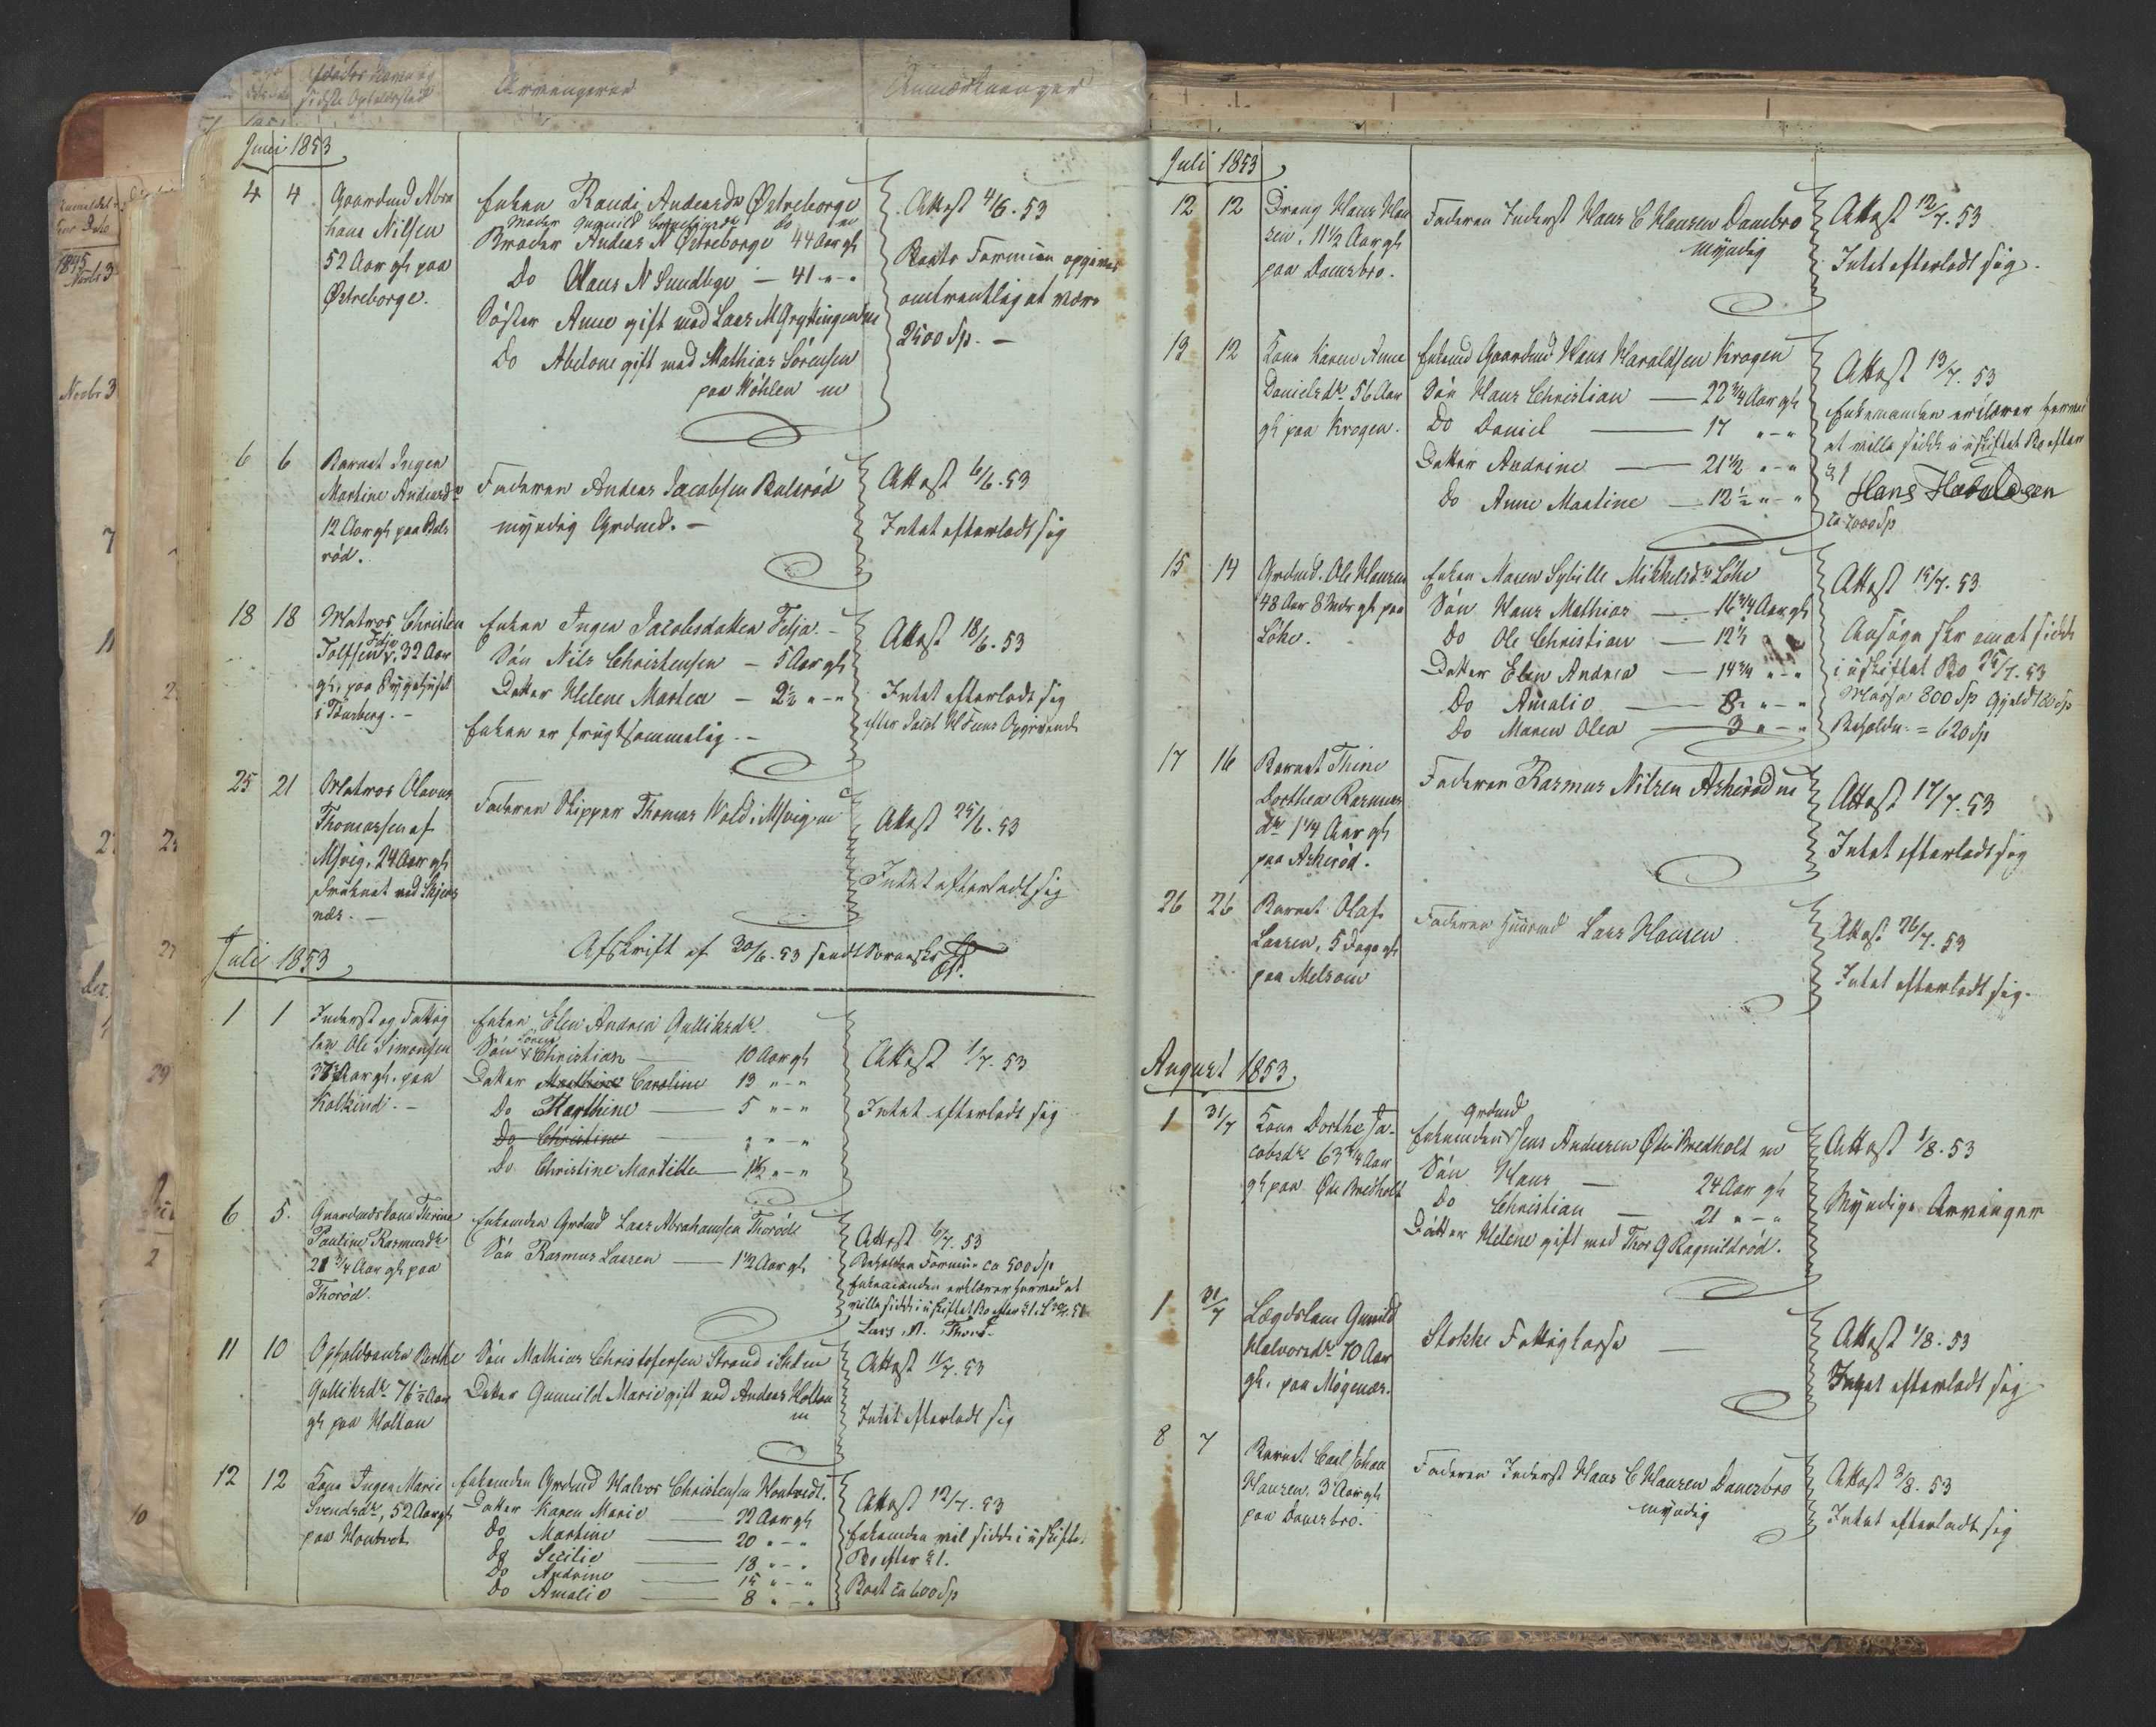 Afdødes Navn og
sidste Opholdssted
Arvingerne
Anmærkninger
1845
Novbr 3
Novbr 3
Juni 1853
4 4 Gaardmd Abra
hans Nilsen
52 Aar gl paa
Østreborge.
Enken Randi Andersdr Østreborge
Moder Gunnild Do
Broder Anders N Østreborge 44 Aar gl
Do Hans N Sundbye — 41 " - "
Søster Anne gift med Lars M Gryttingen
Do Abelone gift med Mathias Sørensen
paa Nøklen m
Attest 4/6. 53
Boets Formue opgives
omtrentlig at være
2500 Sp. —
6 6 Barnet Inger
Martine Andersdr
12 Aar gl paa Bols
rød.
Faderen Anders Jacobsen Bolsrød
myndig Grdmd. —
Attest 6/6. 53
Intet efterladt sig
18 18 Matros Christen
Tolfsen Felje, 32 Aar
gl, paa Sygehuset
i Tønsberg. —
Enken Inger Jacobsdatter Felje. —
Søn Nils Christensen — 5 Aar gl
Datter Helene Martea — 2½ " - "
Enken er frugtsommelig. —
Attest 18/6. 53
Intet efterladt sig
efter Jacob Opgivende
25 21 Matros Olavus
Thomassen af
Msvig, 24 Aar gl
druknet ved
næs. —
Faderen Skipper Thomas Wold i Msvig m
Attest 25/6. 53
Intet efterladt sig
Afskrift af 30/6. 53 sendt Sorenskr.
Juli 1853
1 1 Inderst og Fattig
lem Ole Simonsen
37 Aar gl. paa
Kolkind. —
Enken Elen Andrea Gulliksdr
Søn Søren Christian — 10 Aar gl
Datter Mathine Caroline 13 " - "
Do Marthine — 5 " - "
Do Christine — " - "
Do Christine Martille — 1½ " - "
Attest 1/7. 53
Intet efterladt sig
6 5. Gaardmdskone Thrine
Pauline Rasmusdr
21 3/4 Aar gl paa
Thorød.
Enkemden Grdmd Lars Abrahamsen Thorød
Søn Rasmus Larsen — 1½ Aar gl
Attest 6/7. 53
Beholden Formue ca 500 Sp
Enkemanden erklærer hermed at
ville sidde i uskiftet Bo efter
Lars A. Thorød
11 10 Opholdsenken Berthe
Gulliksdr 76½ Aar
gl paa Holtan
Søn Mathias Christofersen Strand
Datter Gunnild Marie gift med Anders Holtan
m
Attest 11/7. 53
Intet efterladt sig
12 12 Kone Inger Marie
Svendsdr, 52 Aar gl
paa Hontvet
Enkemden Grdmd Halvor Christensen Hontvedt.
Datter Karen Marie — 22 Aar gl
Do Martine — 20 " - "
Do Secilie — 18 " - "
Do Andrine — 15 " - "
Do Amalie — 8 " - "
Attest 12/7. 53
Enkemden vil sidde i uskiftet
Bo efter §1.
Boet ca 600 Sp
Juli 1853
12 12 Dreng Hans Han
sen, 11½ Aar gl
paa Danesbro.
Faderen Inderst Hans C Hansen Danebro
myndig
Attest 12/7. 53
Intet efterladt sig.
13 12 Kone Karen Anne
Danielsdr. 56 Aar
gl paa Krogen.
Enkemd Gaardmd Hans Haraldsen Krogen
Søn Hans Christian — 22 3/4 Aar gl
Do Daniel — 17 " - "
Datter Andrine — 21½ " - "
Do Anne Martine — 12½ " - "
Attest 13/7. 53
Enkemanden erklærer hermed
at ville sidde i uskiftet Bo efter
§1 Hans Haraldsen
ca 2000 Sp
15 14 Grdmd. Ole Hansen
48 Aar 8 Mdr gl paa
Løke.
Enken Maren Sybille Mikkelsdr Løke
Søn Hans Mathias — 16 3/4 Aar gl
Do Ole Christian — 12½
Datter Elen Andrea — 14 3/4 " - "
Do Amalie — 8 " - "
Do Maren Olea — 3 " - "
Attest 15/7. 53
Ansøgn. skr om at sidde
i uskiftet Bo 25/7. 53
Masse 800 Sp Gjeld 180 Sp
Beholdn: = 620 Sp
17 16 Barnet Thine
Dorthea Rasmus
dr 1¼ Aar gl
paa Askerød.
Faderen Rasmus Nilsen Askerød m
Attest 17/7. 53
Intet efterladt sig
26 26 Barnet Olaf
Larsen, 5 Dage gl
paa Melsom
Faderen Huusmd Lars Hansen
Attest 26/7. 53
Intet efterladt sig.
August 1853.
1 31/7 Kone Dorthe Ja-
cobsdr 63 3/4 Aar
gl paa Øde Bredholt
Enkemden Grdmd Jens Andersen Øde Bredholt m
Søn Hans — 24 Aar gl
Do Christian — 21 " - "
Datter Helene gift med Thor G Ragnildrød.
Attest 1/8. 53
Myndige Arvinger
1 31/7 Lægdslem Gunild
Halvorsdr 70 Aar
gl. paa Mogenæs.
Stokke Fattigkasse —
Attest 1/8. 53
Intet efterladt sig
8 7 Barnet Carl Johan
Hansen, 3 Aar gl
paa Danesbro.
Faderen Inderst Hans C Hansen Danesbro
myndig
Attest 8/8. 53
Intet efterladt sig